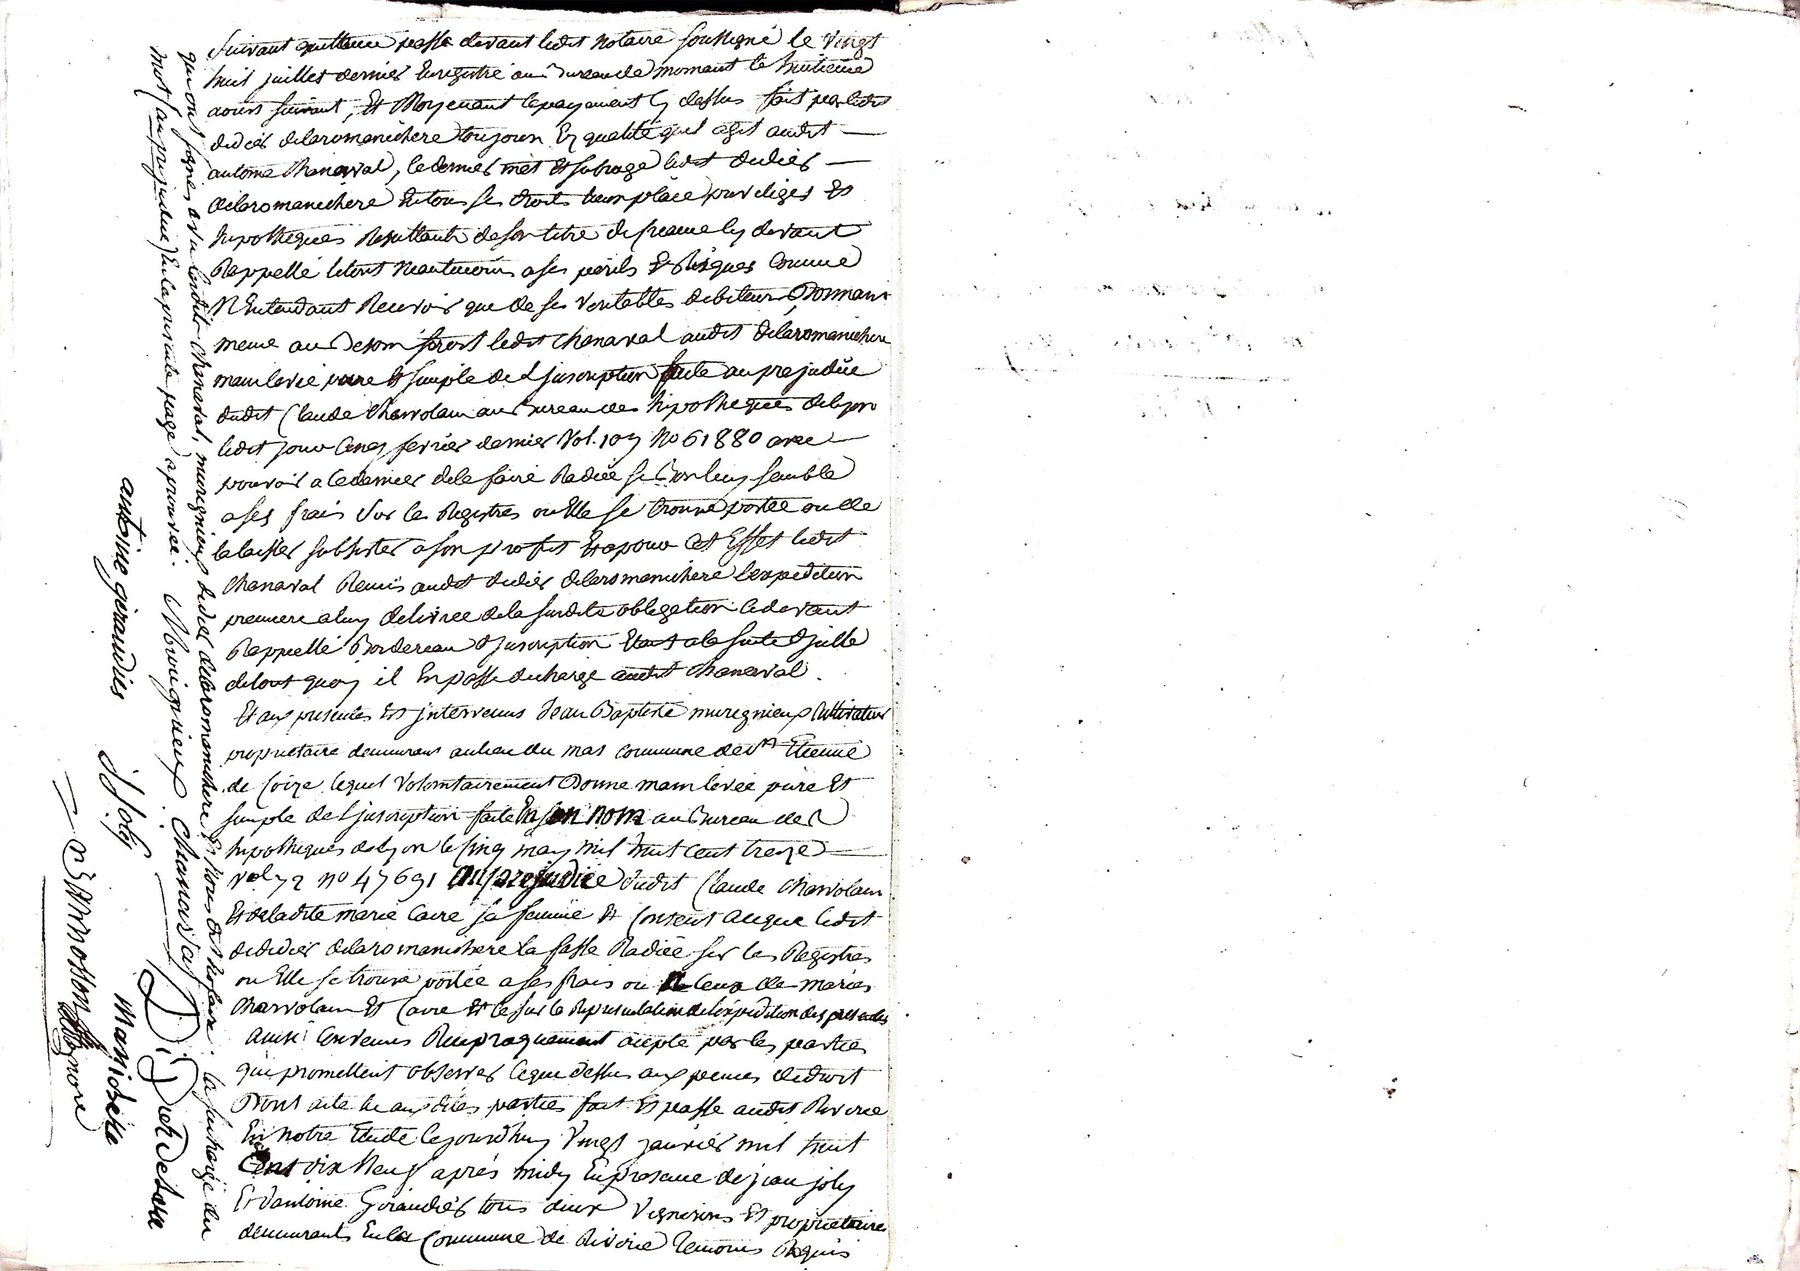 Suivant quittance passé devant ledit Notaire soussigné le vingt
huit juillet dernier Enregistré au Bureau de mornant le huitieme
aoust suivant, Et Moyenant le payement Cy dessus fait par ledit
didier delaromanichere toujours En qualité quil agit audit
antoine Chanaval, ce dernier met Et subroge ledit didier
delaromanichere En tous ses droits place priviliges Et
hipotheques Resultants de son titre de creance cy devant
Rappellé le tout neantmoins a ses perils Et Risques Comme
N'Entendant Recevoir que de ses veritables debiteurs Donnant
meme au Besoin seroit ledit Chanaval audit delaromanichere
mainlevée pure Et simple de L'juscription faite au prejudice
dudit Claude Charvolain au Bureau des hipotheques de lyon
ledit jour Cinq fevrier dernier Vol. 109 No 61880 avec
pouvoir a ce dernier de la faire Radiée si Bon luy semble
a ses frais sur les Registres ou Elle se trouve portée ou de
la laisser subsister a son profit Et a pour cet Effet ledit
Chanaval Remis audit didier delaromanichere l'expedition
premiere a luy delivrée de la susdite obligation cy devant
Rappellé Bordereau d'juscription Etant a la suite d'jcelle
de tout quoy il En passe decharge audit Chanaval.
Et aux presentes Est jntervenus Jean Baptiste murignieux Cultivateur
proprietaire demeurant au lieu du mas commune de St Etienne
de Coize lequel Volontairement Donne main levée pure Et
simple de L'juscription faite En son nom au Bureau des
hipotheques de lyon le Cinq may mil huit cent treize
vol 72 no 47691 au prejudice dudit Claude Charvolain
Et de ladite marie Caire sa femme Et Consent a ce que ledit
didier delaromanichere la fasse Radiée sur les Registres
ou Elle se trouve portée a ses frais ou a ceux des mariés
Charvolain Et Caire Et ce sur la Representation de l'expedition des presentes
ainsi Convenus Reciproquement accepté par les parties
qui promettent observer ce que dessus aux peines de droit
Dont acte aux dites parties fait Et passé audit Riverie
En notre Etude ce jourd'huy Vingt janvier mil huit
Cent dix Neuf après midy En presence de jean joly
Et d'antoine Giraudier tous deux Vignerons Et proprietaires
demeurants En la Commune de Riverie Temoins Requis
qui ont signés avec lesdits Chanaval, murignieux didier delaromanichere Et Nous dit Notaire. la surcharge du
mot (au prejudice) En la presente page aprouvée.
Murignieux Chanaval
Didier De La
Manichere
antoine giraudier
J Joly